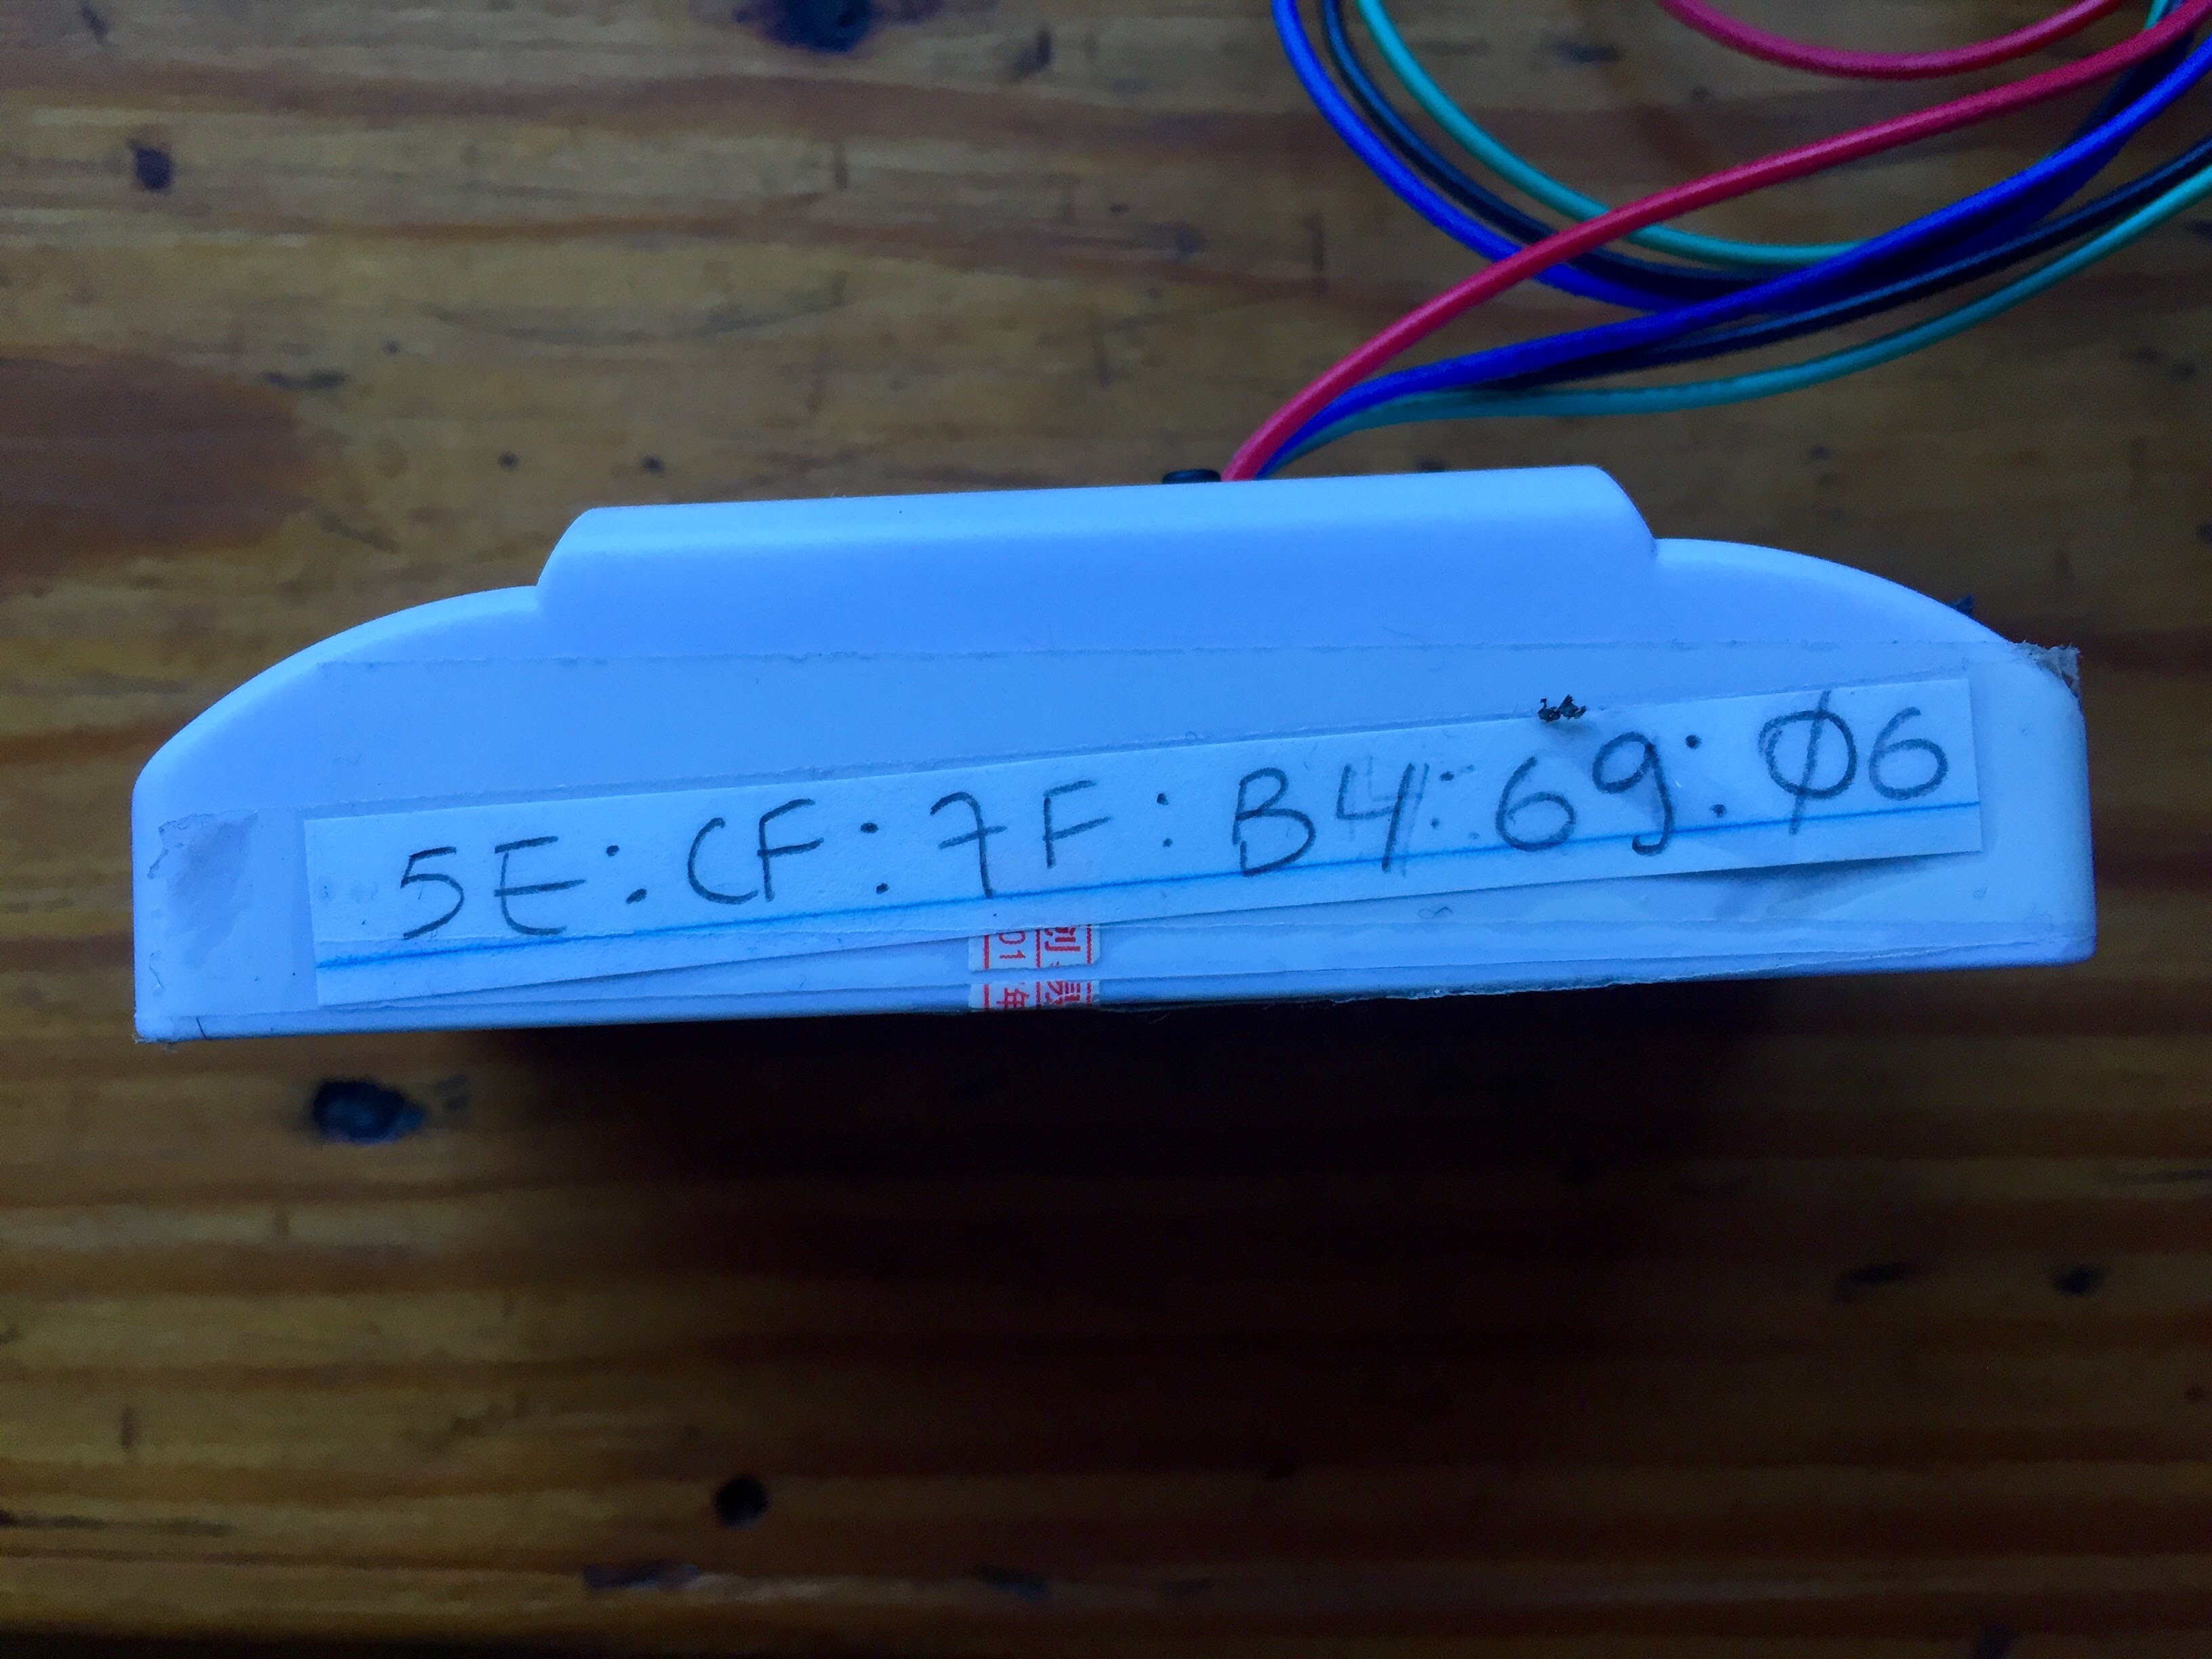 5E:CF:7F:B4:69:Ø6
01
年